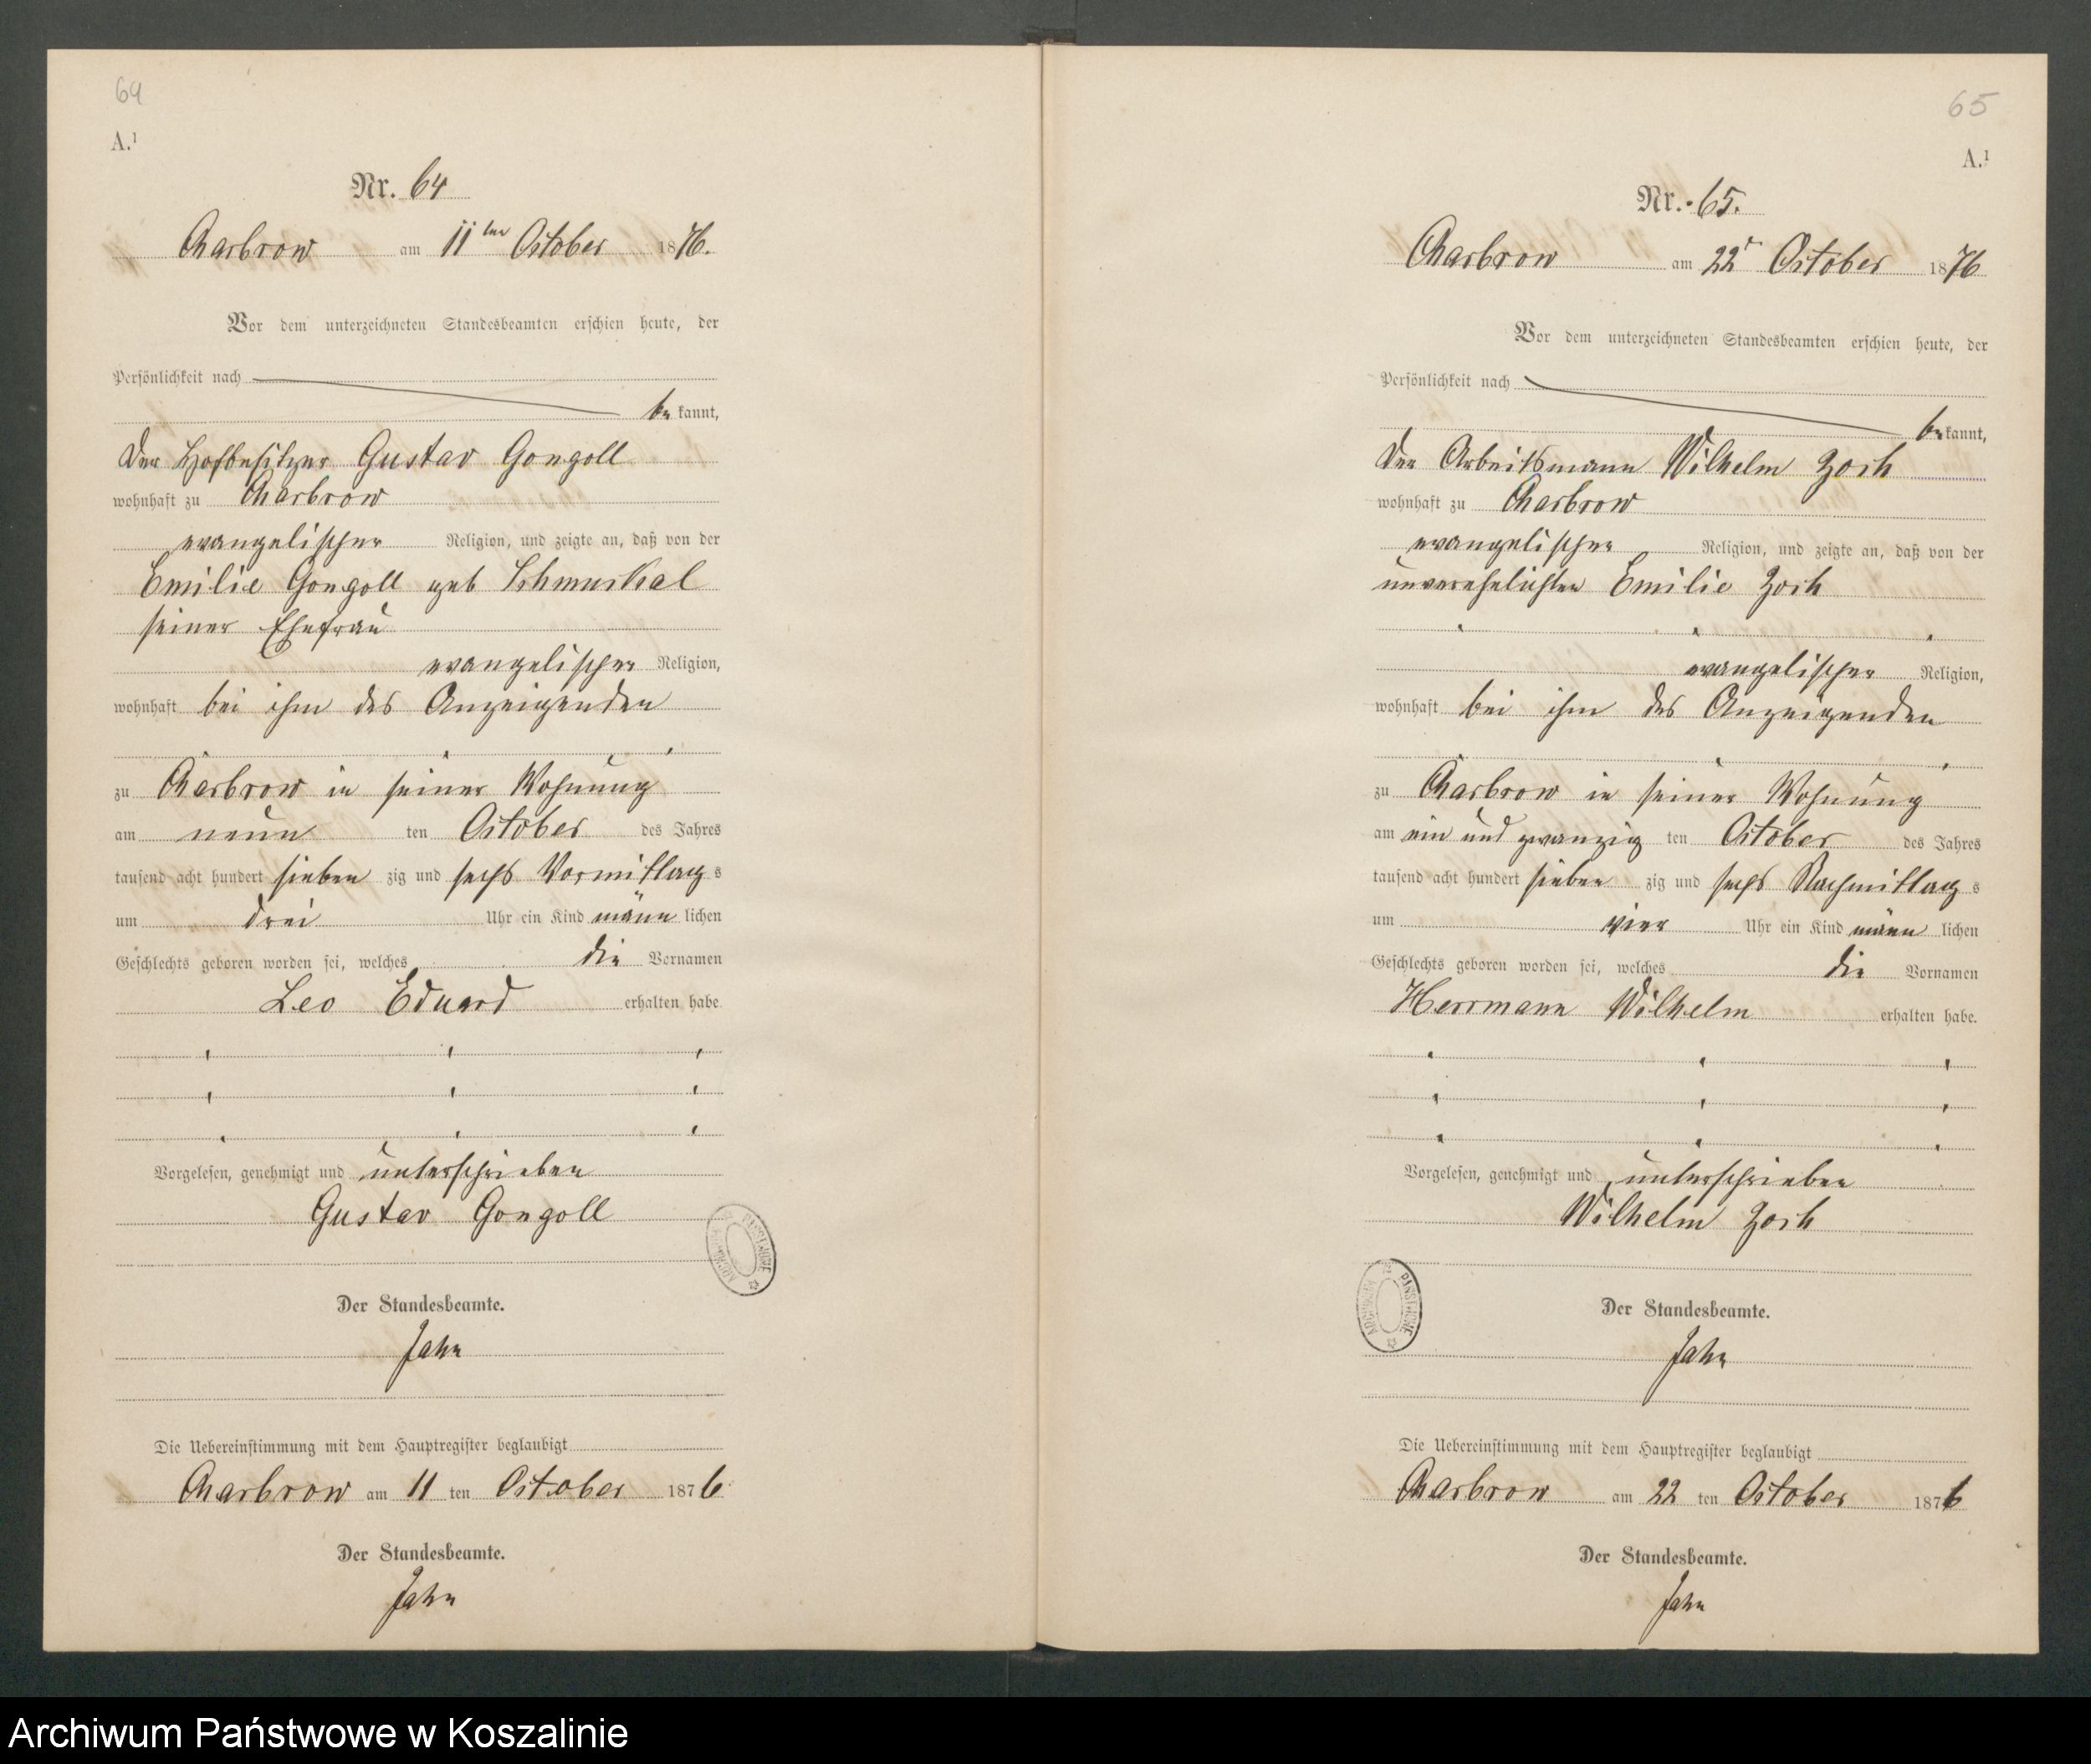 64
A.¹
Nr. 64
Charbrow am 11ten October 1876.
Vor dem unterzeichneten Standesbeamten erschien heute, der
Persönlichkeit nach
be kannt,
der Hofbesitzer Gustav Gongoll
wohnhaft zu Charbrow
evangelischer Religion, und zeigte an, daß von der
Emilie Gongoll geb Schmuckal
seiner Ehefrau
evangelischer Religion,
wohnhaft bei ihm des Anzeigenden
zu Charbrow in seiner Wohnung
am neun ten October des Jahres
tausend acht hundert sieben zig und sechs Vormittag s
um drei Uhr ein Kind männ lichen
Geschlechts geboren worden sei, welches die Vornamen
Leo Eduard erhalten habe.
Vorgelesen, genehmigt und unterschrieben
Gustav Gongoll
Der Standesbeamte.
Jahn
Die Uebereinstimmung mit dem Hauptregister beglaubigt
Charbrow am 11 ten October 1876
Der Standesbeamte.
Jahn
65
A.¹
Nr. 65.
Charbrow am 22t October 1876
Vor dem unterzeichneten Standesbeamten erschien heute, der
Persönlichkeit nach
be kannt,
der Arbeitsmann Wilhelm Zoch
wohnhaft zu Charbrow
evangelischer Religion, und zeigte an, daß von der
unverehelichten Emilie Zoch
evangelischer Religion,
wohnhaft bei ihm des Anzeigenden
zu Charbrow in seiner Wohnung
am ein und zwanzig ten October des Jahres
tausend acht hundert sieben zig und sechs Nachmittag s
um vier Uhr ein Kind männ lichen
Geschlechts geboren worden sei, welches die Vornamen
Herrmann Wilhelm erhalten habe.
Vorgelesen, genehmigt und unterschrieben
Wilhelm Zoch
Der Standesbeamte.
Jahn
Die Uebereinstimmung mit dem Hauptregister beglaubigt
Charbrow am 22 ten October 1876
Der Standesbeamte.
Jahn
Archiwum Państwowe w Koszalinie